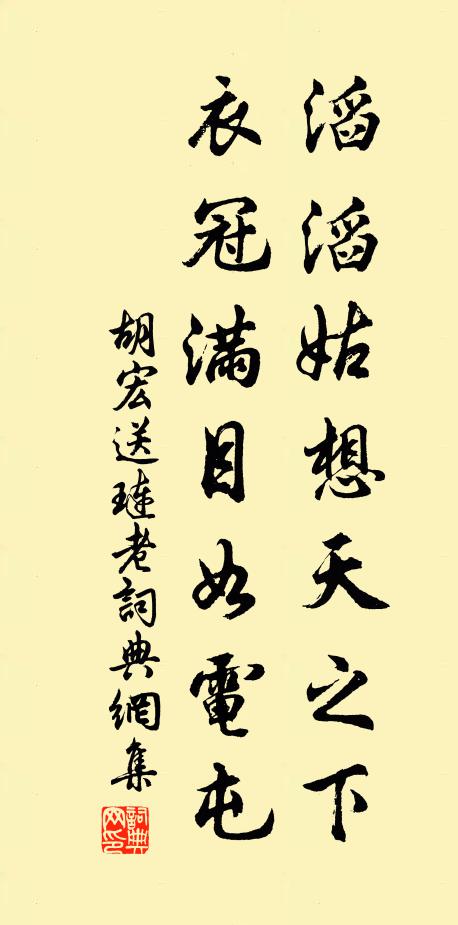 滔滔姑想天之下
衣冠滿目如電屯
胡宏送璉老詞典網集
詞典網印